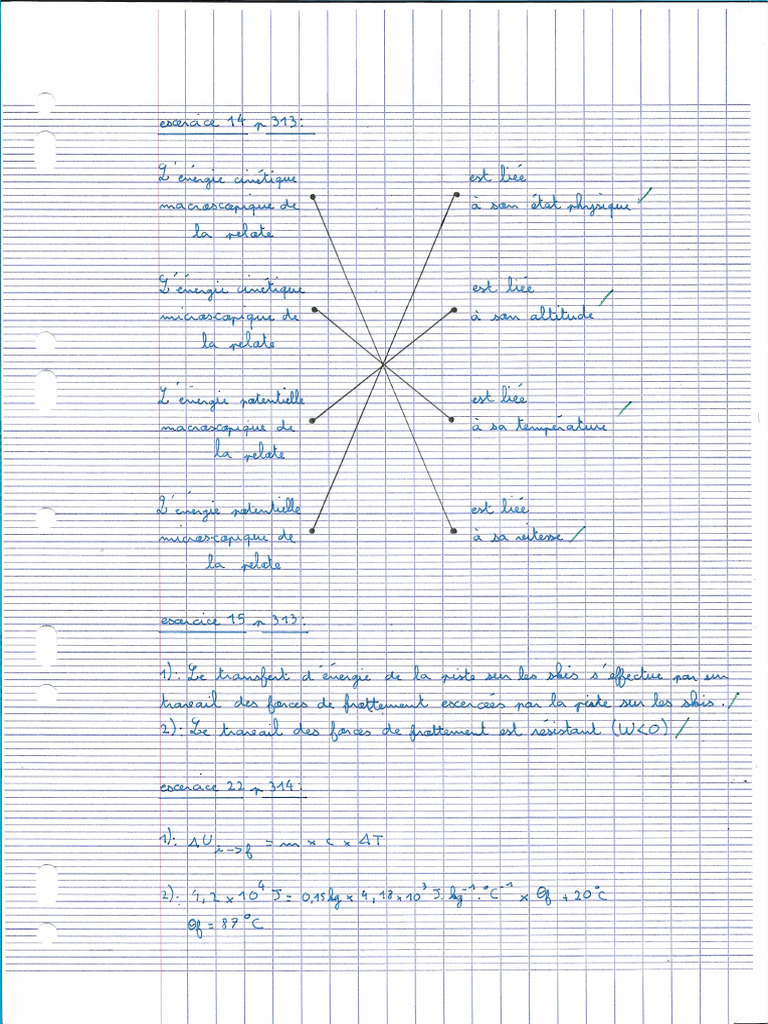 exercice 14 p 313:
L'énergie cinétique
macroscopique de
la pelote
est liée
à son état physique
L'énergie cinétique
microscopique de
la pelote
est liée
à son altitude
L'énergie potentielle
macroscopique de
la pelote
est liée
à sa température
L'énergie potentielle
microscopique de
la pelote
est liée
à sa vitesse
exercice 15 p 313:
1): Le transfert d'énergie de la piste sur les skis s'effectue par un
travail des forces de frottement exercées par la piste sur les skis.
2): Le travail des forces de frottement est résistant (W<0)
exercice 22 p 314:
1): ΔU i->f = m × c × ΔT
2): 4,2 × 10⁴ J = 0,15 kg × 4,18 × 10³ J. kg⁻¹. °C⁻¹ × θf + 20°C
θf = 87°C